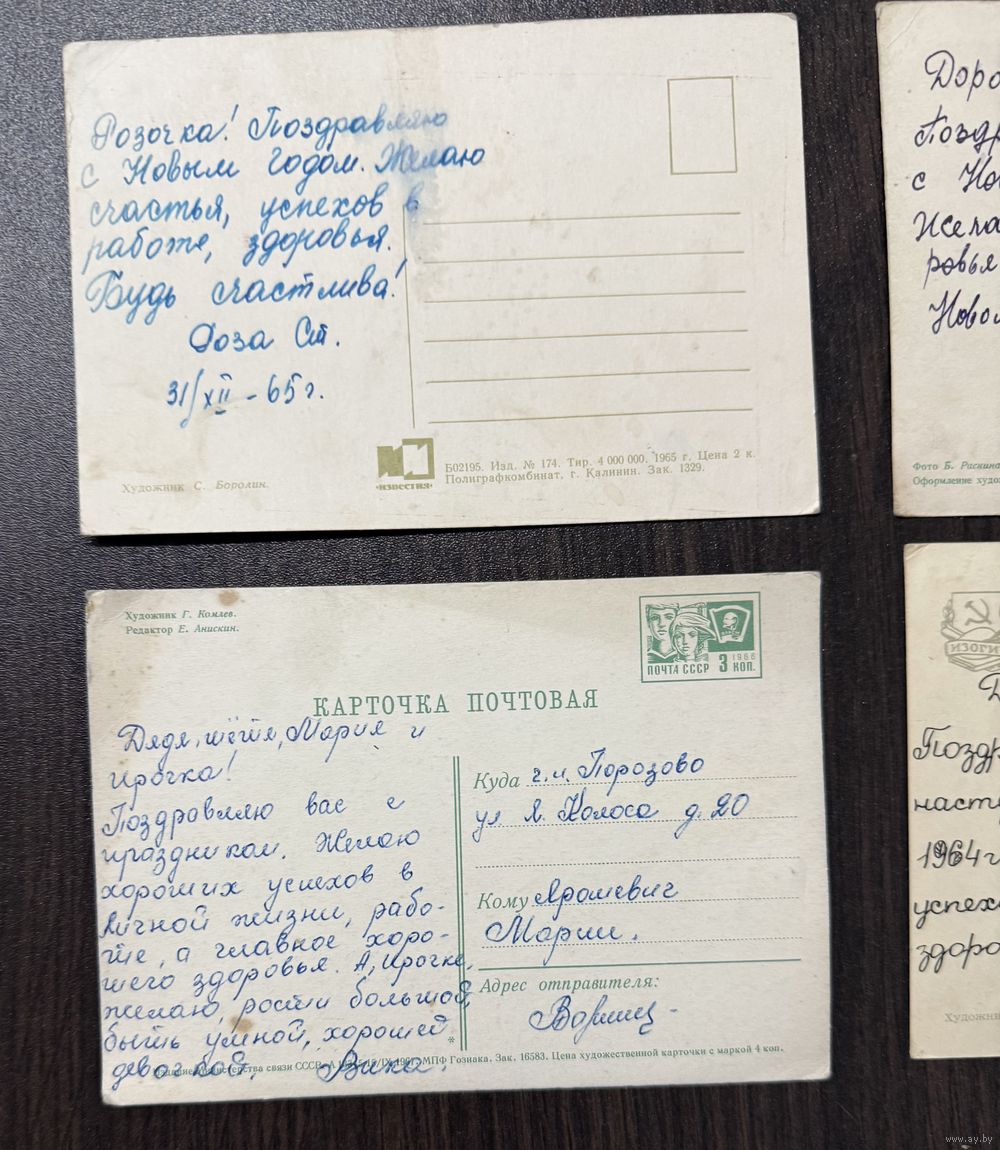 Розочка! Поздравляю
с Новым Годом. Желаю
счастья, успехов в
работе, здоровья.
Будь счастлива!
Роза Ст.
31/XII - 65 г.
Художник С. Боролин.
ИЗВЕСТИЯ
Б02195. Изд. № 174. Тир. 4 000 000. 1965 г. Цена 2 к.
Полиграфкомбинат, г. Калинин. Зак. 1329.
Доро
Поздр
с Но
Жела
ровья
Ново
Фото Б. Раскина
Оформление худо
Художник Г. Комлев.
Редактор Е. Анискин.
1966
ПОЧТА СССР 3 КОП.
КАРТОЧКА ПОЧТОВАЯ
Дядя, тётя, Мария и
Ирочка!
Поздравляю вас с
праздником. Желаю
хороших успехов в
личной жизни, рабо-
те, а главное хоро-
шего здоровья. А, Ирочке,
желаю, расти большой,
быть умной, хорошей
девочкой. Вика.
Куда г.п. Порозово
ул Я. Колоса д. 20
Кому Ярошевич
Марии.
Адрес отправителя:
Министерства связи СССР. МПФ Гознака. Зак. 16583. Цена художественной карточки с маркой 4 коп.
ИЗОГИ
Д
Поздр
наст
1964 г
успех
здоро
Художн
www.ay.by